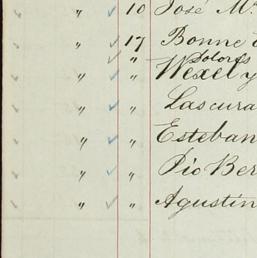 10 José M.
" 17 Bonne
" Dolores
" " Wexel y
" " Lascura
" " Esteban
" " Pio Ber
" " Agustin